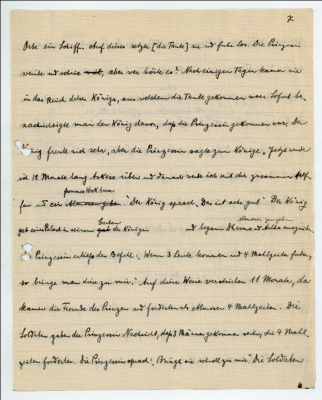 7
Orte ein Schiff. Auf dieses setzte [die Tante] sie und fuhr los. Die Prinzessin
weinte und schrie, aber wer hörte es? Nach einigen Tagen kamen sie
in das Reich des Königs, aus welchem die Tante gekommen war. Sofort be-
nachrichtigte man den König davon, dass die Prinzessin gekommen war. Der
König freute sich sehr, aber die Prinzessin sagte zum Könige: "Jetzt werde
ich 12 Monate lang Askese üben und danach werde ich mit dir zusammen
frommes Werk tun
ein "Der König sprach, Das ist sehr gut". Der König
gab einen Palast in seinem der Königin und begann Dharma und
Prinzessin erließ den Befehl: "Wenn 3 Leute kommen und 4 Mahlzeiten fordern,
so bringe man sie zu mir." Auf diese Weise verstrichen 11 Monate, da
kamen die Freunde des Prinzen und forderten als Almosen 4 Mahlzeiten. Die
Soldaten gaben der Prinzessin Nachricht, dass 3 Männer gekommen seien, die 4 Mahl-
zeiten forderten. Die Prinzessin sprach: "Bringe sie schnell zu mir". Die Soldaten